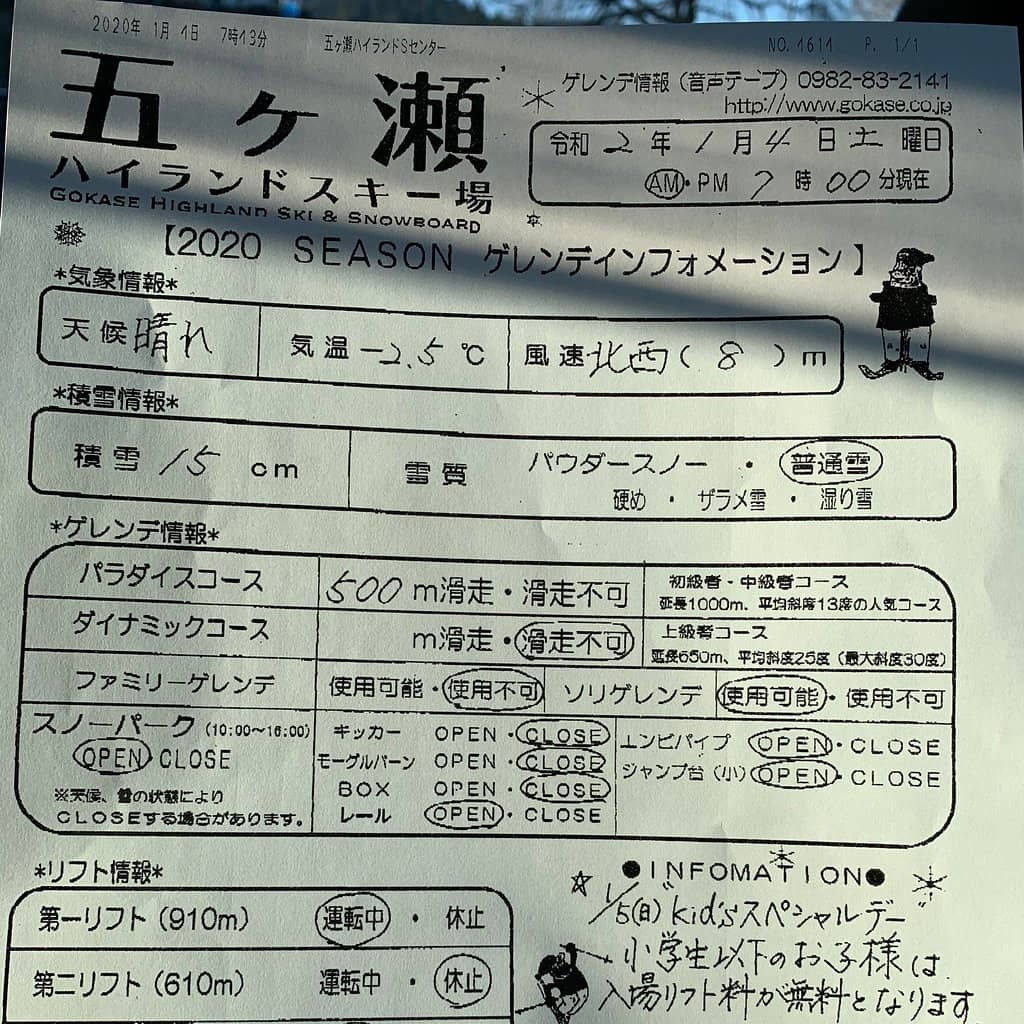 2020年 1月 4日 7時13分 五ヶ瀬ハイランドSセンター NO.1611 P. 1/1
五ヶ瀬
ハイランドスキー場
GOKASE HIGHLAND SKI & SNOWBOARD
ゲレンデ情報（音声テープ）0982-83-2141
http://www.gokase.co.jp
令和 2 年 1 月 4 日 土 曜日
AM・PM 7 時 00 分現在
【2020 SEASON ゲレンデインフォメーション】
*気象情報*
天候 晴れ 気温 -2.5 ℃ 風速 北西（ 8 ）m
*積雪情報*
積雪 15 cm 雪質 パウダースノー ・ 普通雪
硬め ・ ザラメ雪 ・ 湿り雪
*ゲレンデ情報*
パラダイスコース 500 m滑走・滑走不可 初級者・中級者コース
延長1000m、平均斜度13度の人気コース
ダイナミックコース m滑走・滑走不可 上級者コース
延長650m、平均斜度25度（最大斜度30度）
ファミリーゲレンデ 使用可能・使用不可 ソリゲレンデ 使用可能・使用不可
スノーパーク（10:00～16:00）
OPEN・CLOSE
※天候、雪の状態により
CLOSEする場合があります。
キッカー OPEN・CLOSE
モーグルバーン OPEN・CLOSE
BOX OPEN・CLOSE
レール OPEN・CLOSE
エンビパイプ OPEN・CLOSE
ジャンプ台（小）OPEN・CLOSE
*リフト情報*
第一リフト（910m） 運転中 ・ 休止
第二リフト（610m） 運転中 ・ 休止
●INFOMATION●
☆ 1/5(日) kid'sスペシャルデー
小学生以下のお子様は
入場リフト料が無料となります